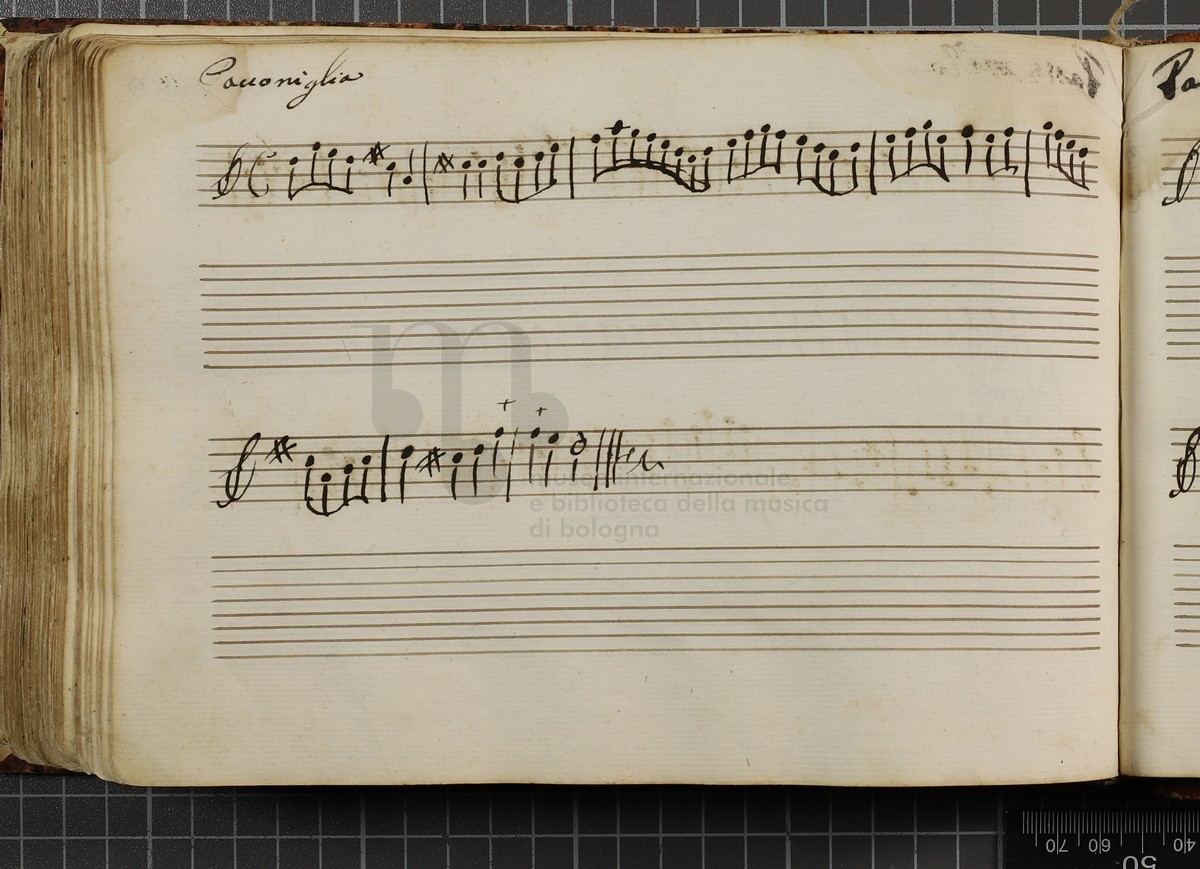 Pavoniglia
Pa
m
museo internazionale
e biblioteca della musica
di bologna
70 60 50 40